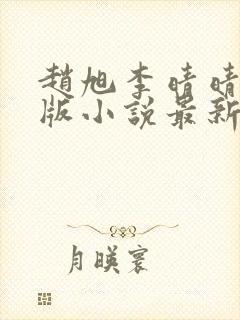 趙旭李晴晴
版小說最新
月暎寰